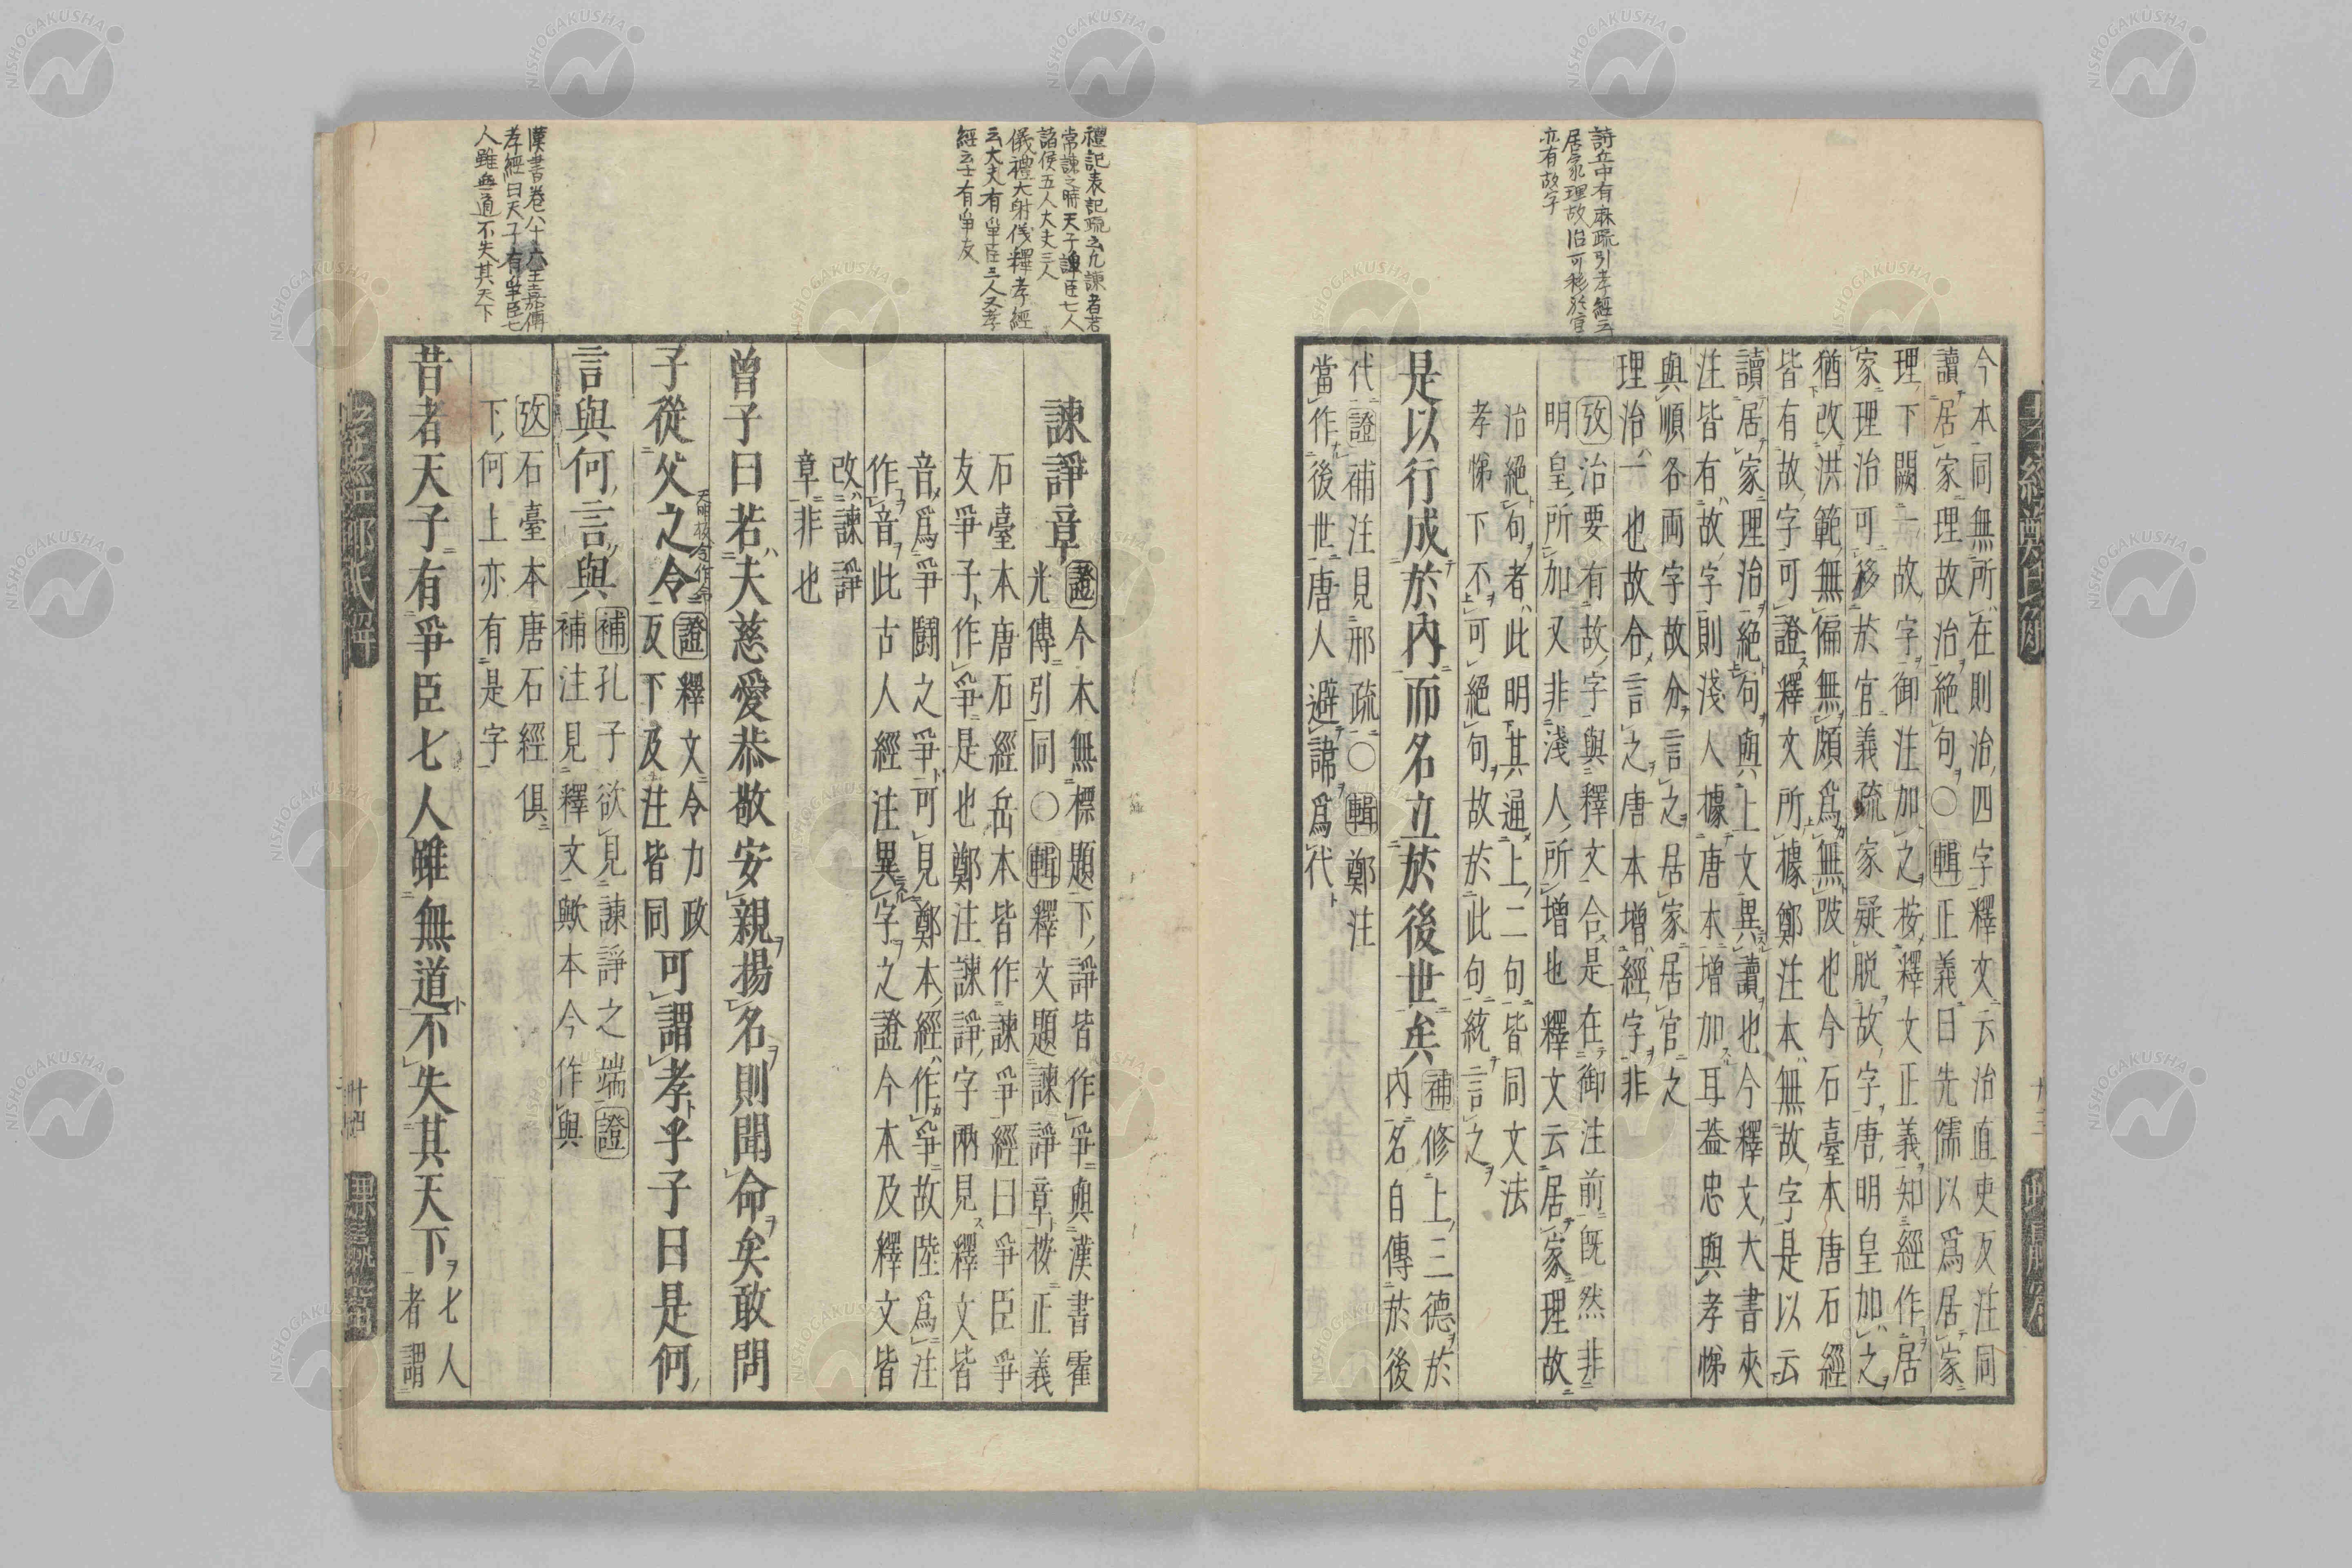 詩丘中有麻疏引孝經云
居家理故治可移於官
亦有故字
今本同無所在則治四字釋文云治直吏反注同
讀居家理故治絕句〇輯正義曰先儒以爲居家
理下闕一故字御注加之按釋文正義知經作居
家理治可移於官義疏家疑脱故字唐明皇加之
猶改洪範無偏無頗爲無陂也今石臺本唐石經
皆有故字可證釋文所據鄭注本無故字是以云
讀居家理治絕句與上文異讀也今釋文大書夾
注皆有故字則淺人據唐本增加耳葢忠與孝悌
與順各兩字故分言之居家居官之
理治一也故合言之唐本增經字非
攷治要有故字與釋文合是在御注前既然非
明皇所加又非淺人所增也釋文云居家理故
治絕句者此明其通上二句皆同文法
孝悌下不可絕句故於此句統言之
是以行成於內而名立於後世矣
補修上三德於
內名自傳於後
代證補注見邢疏〇輯鄭注
當作後世唐人避諱爲代
禮記表記疏云凡諫者若
常諫之時天子諍臣七人
諸侯五人大夫三人
儀禮大射儀釋孝經
云大夫有爭臣三人又孝
經云士有爭友
諫諍章
證今本無標題下諍皆作爭與漢書霍
光傳引同〇輯釋文題諫諍章按正義
石臺本唐石經岳本皆作諫爭經曰爭臣爭
友爭子作爭是也鄭注諫諍字兩見釋文皆
音爲爭鬪之爭可見鄭本經作爭故陸爲注
作音此古人經注異字之證今本及釋文皆
改諫諍
章非也
曾子曰若夫慈愛恭敬安親揚名則聞命矣敢問
子從父之令
證釋文令力政
反下及注皆同
可謂孝乎子曰是何
言與何言與
補孔子欲見諫諍之端證
補注見釋文歟本今作與
攷石臺本唐石經俱
下何上亦有是字
漢書卷八十六王嘉傳
孝經曰天子有爭臣七
人雖無道不失其天下
昔者天子有爭臣七人雖無道不失其天下
七人
者謂